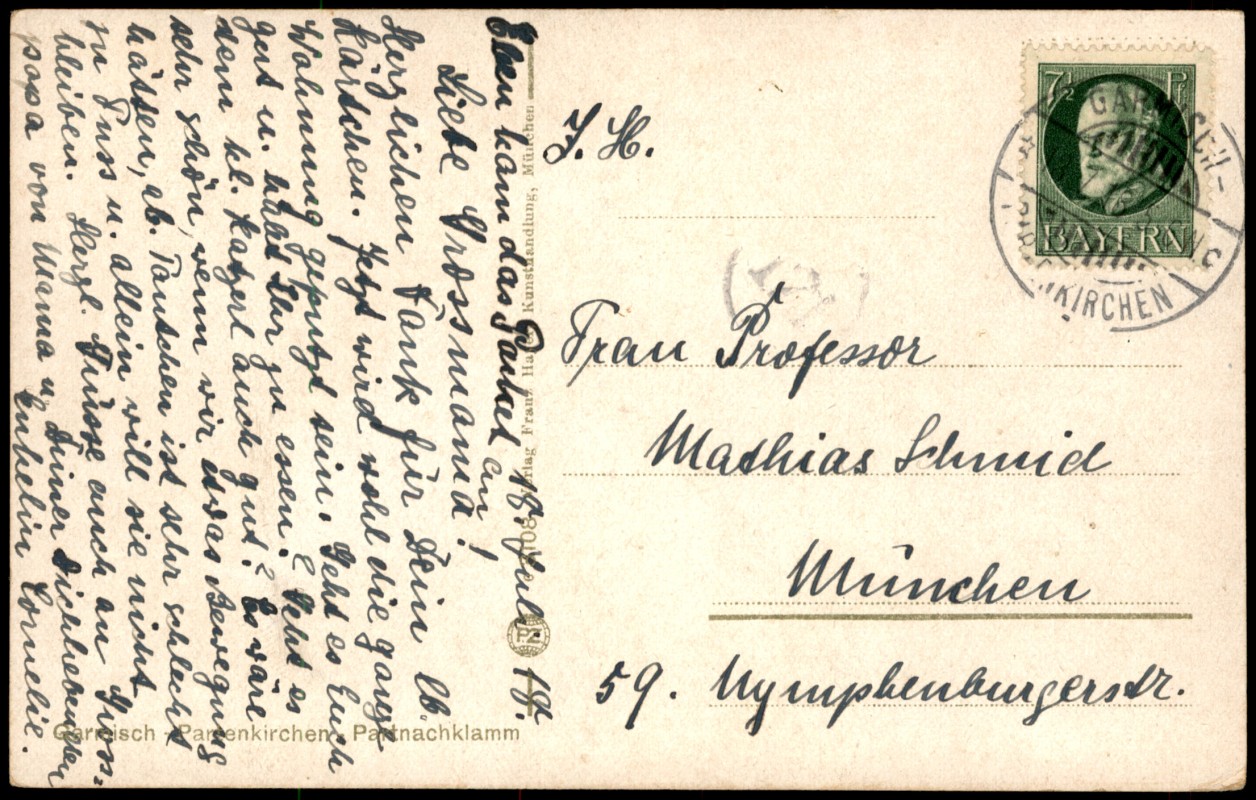 Eben kam das Packet an!
18. Juli 17.
Liebe Grossmama!
Herzlichen Dank für Dein lb.
Kärtchen. Jetzt wird wohl die ganze
Wohnung geputzt sein. Geht es Euch
gut u. habt Ihr zu essen? Geht es
dem kl. Katzerl auch gut? Es wäre
sehr schön, wenn wir etwas Bewegung
hätten, ab. Tantchen ist sehr schlecht
zu Fuss u. allein will sie nicht
bleiben. Herzl. Grüsse auch an Gross=
papa von Mama u. Deiner Dichliebenden
Enkelin Cornelie.
Verlag Franz Kunsthandlung, München
PZ
Garmisch - Partenkirchen, Partnachklamm
I. H.
Frau Professor
Mathias Schmid
München
59. Nymphenburgerstr.
7½ Pf
BAYERN
GARMISCH-
PARTENKIRCHEN